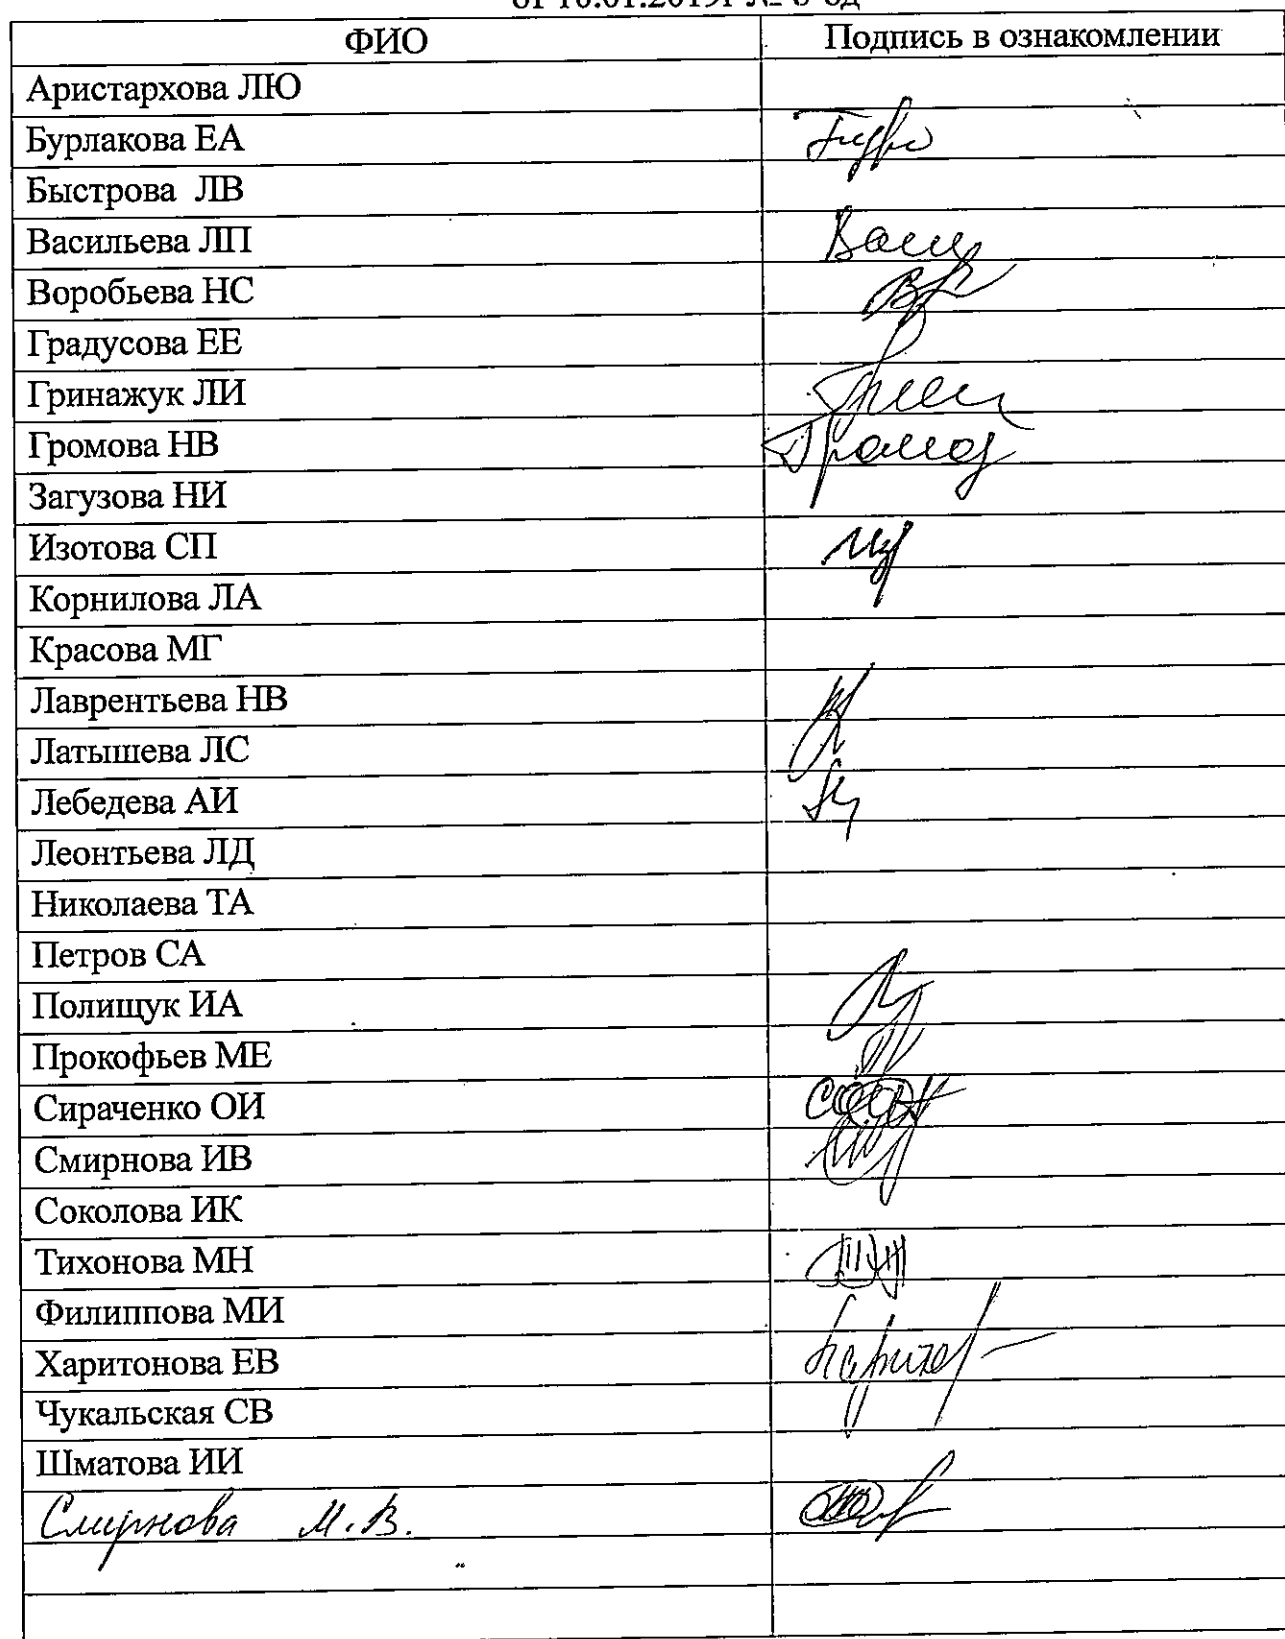 ФИО Подпись в ознакомлении
Аристархова ЛЮ
Бурлакова ЕА
Быстрова ЛВ
Васильева ЛП
Воробьева НС
Градусова ЕЕ
Гринажук ЛИ
Громова НВ
Загузова НИ
Изотова СП
Корнилова ЛА
Красова МГ
Лаврентьева НВ
Латышева ЛС
Лебедева АИ
Леонтьева ЛД
Николаева ТА
Петров СА
Полищук ИА
Прокофьев МЕ
Сираченко ОИ
Смирнова ИВ
Соколова ИК
Тихонова МН
Филиппова МИ
Харитонова ЕВ
Чукальская СВ
Шматова ИИ
Смирнова М.В.